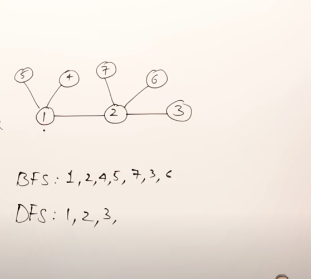 5 4 7 6
1 2 3
BFS: 1, 2, 4, 5, 7, 3, 6
DFS: 1, 2, 3,